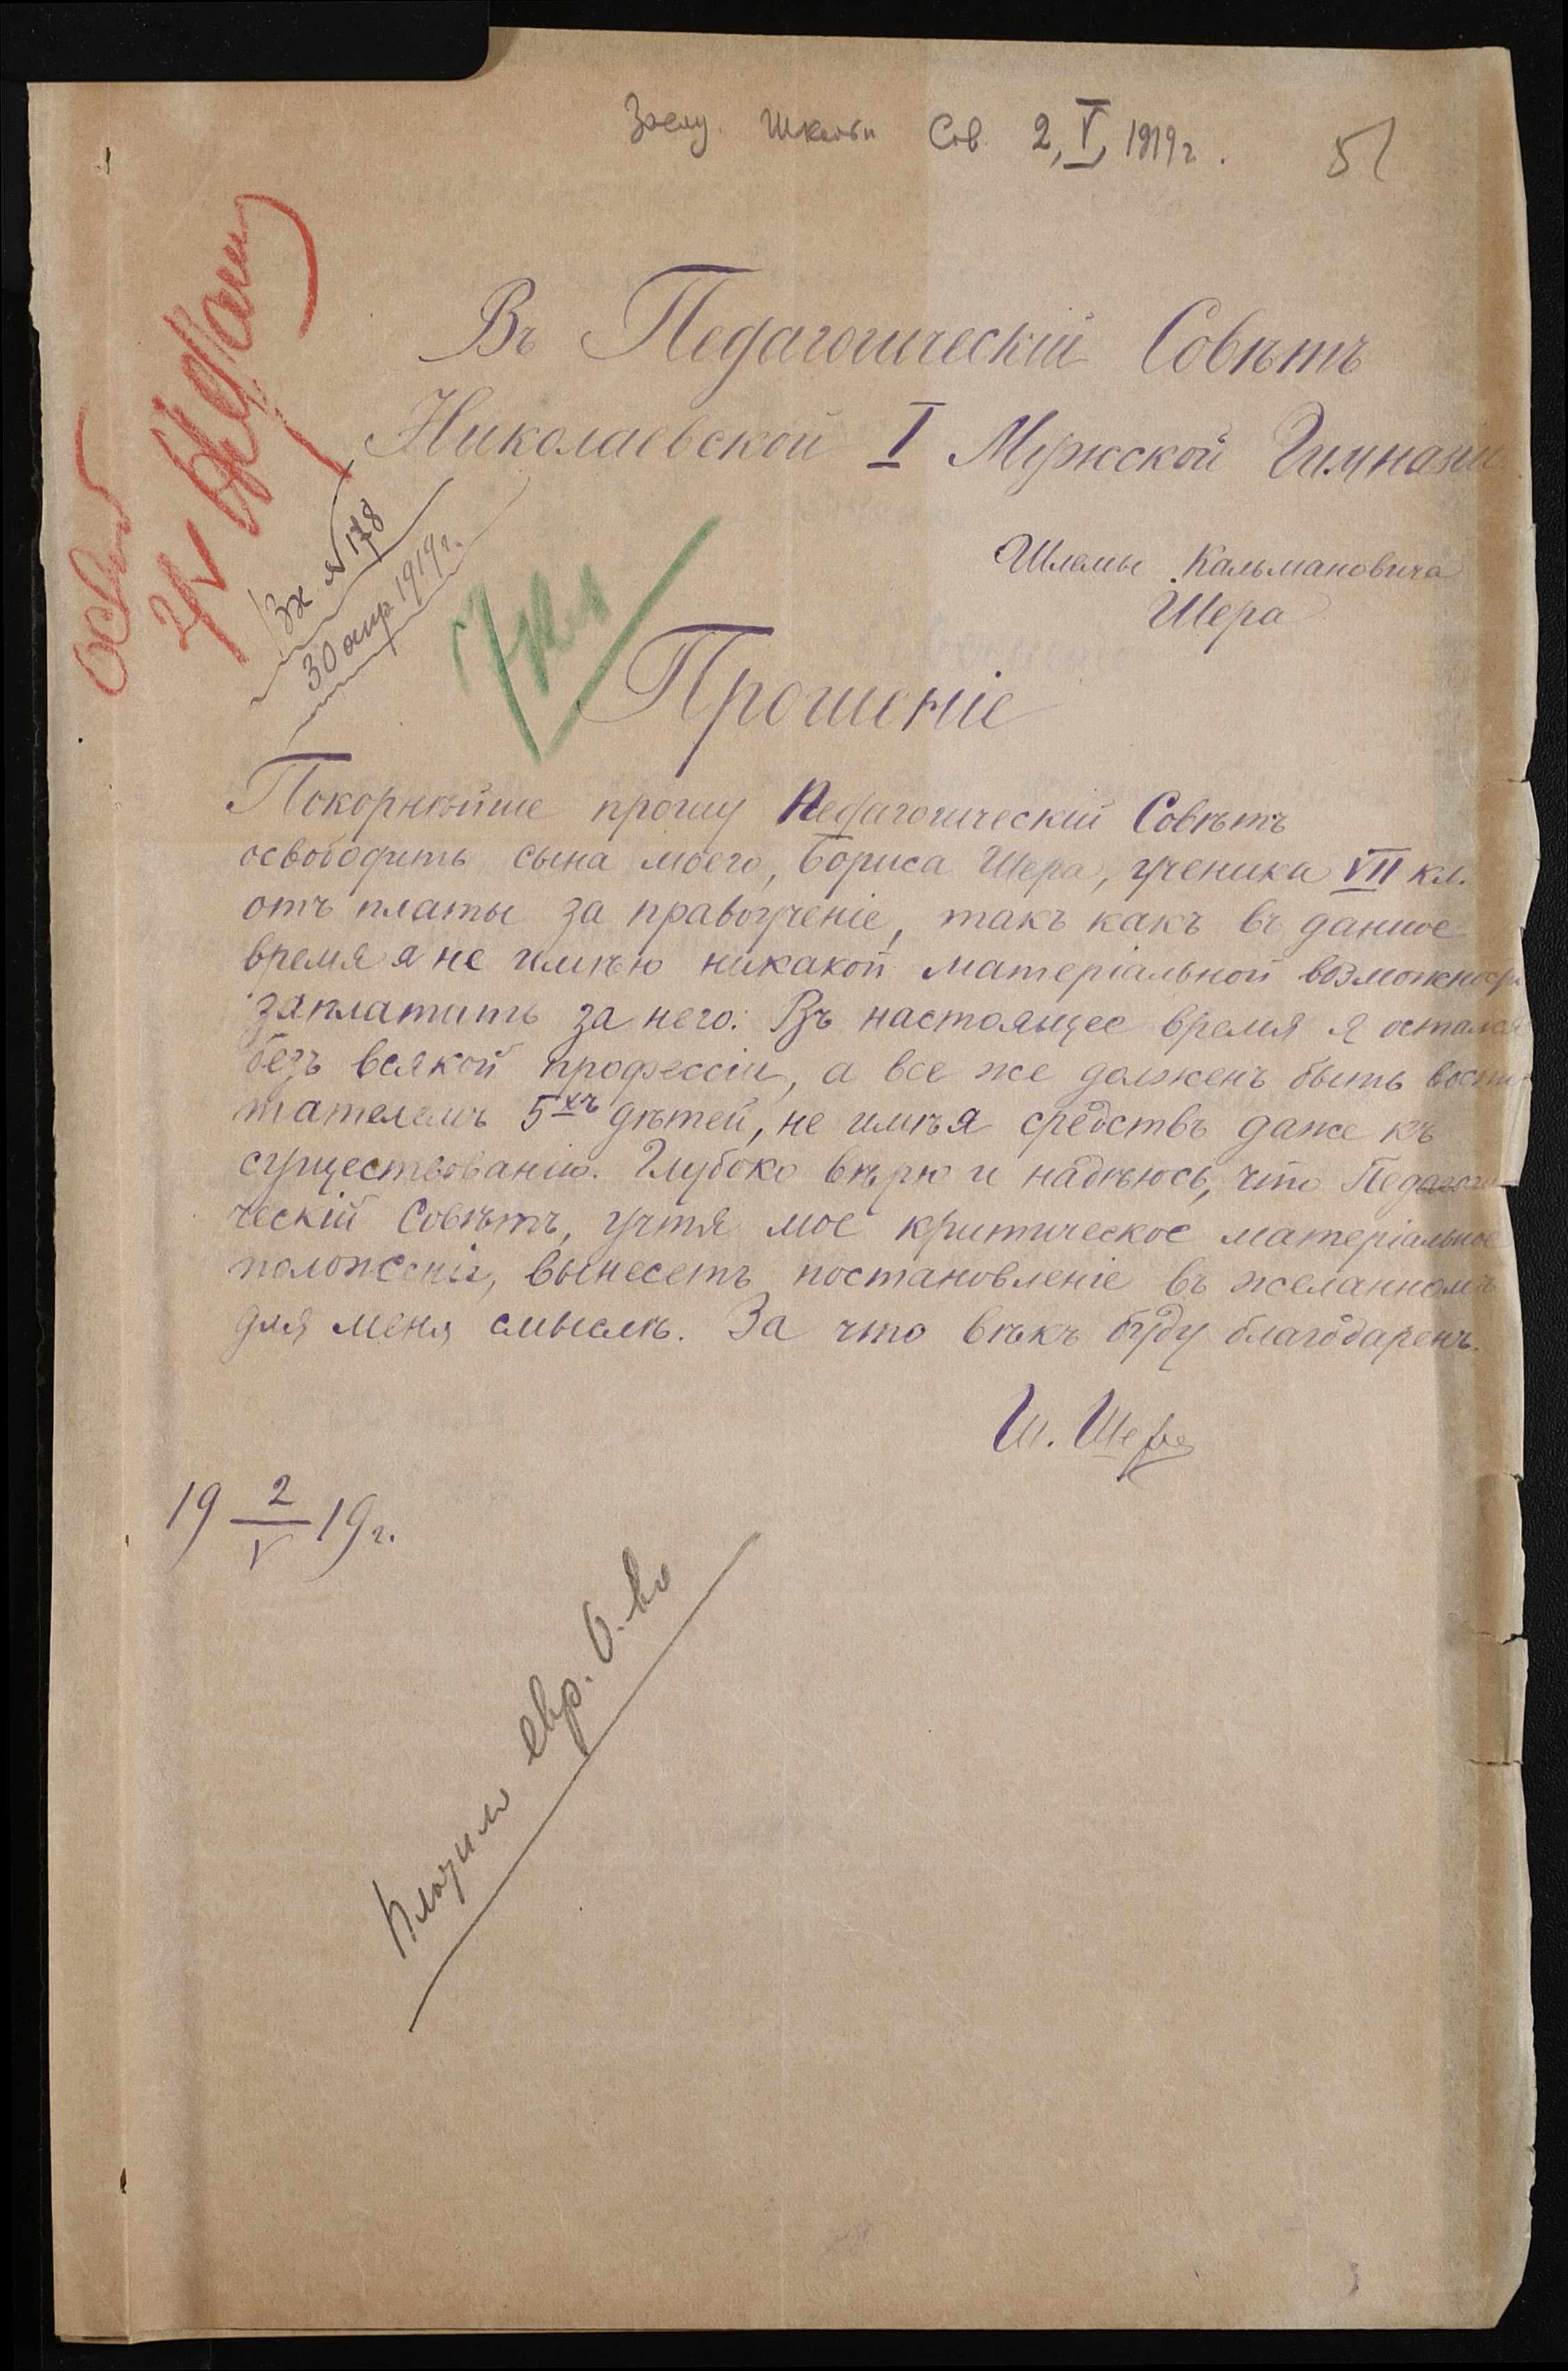 Сов. 2, V, 1919 г.
51
Въ Педагогическій Совѣтъ
Николаевской I Мужской Гимназіи
Вх № 178
30 апр 1919 г.
Шлемы Кальмановича
Шера
Прошеніе
Покорнѣйше прошу Педагогическій Совѣтъ
освободить сына моего, Бориса Шера, ученика VII кл.
отъ платы за правоученіе, такъ какъ въ данное
время я не имѣю никакой матеріальной возможности
заплатить за него. Въ настоящее время я остался
безъ всякой профессіи, а все же долженъ быть воспи-
тателемъ 5хъ дѣтей, не имѣя средствъ даже къ
существованію. Глубоко вѣрю и надѣюсь, что Педагоги
ческій Совѣтъ, учтя мое критическое матеріальное
положеніе, вынесетъ постановленіе въ желанномъ
для меня смыслѣ. За что вѣкъ буду благодаренъ.
Ш. Шеръ
19 2/V 19 г.
платило евр. О-во